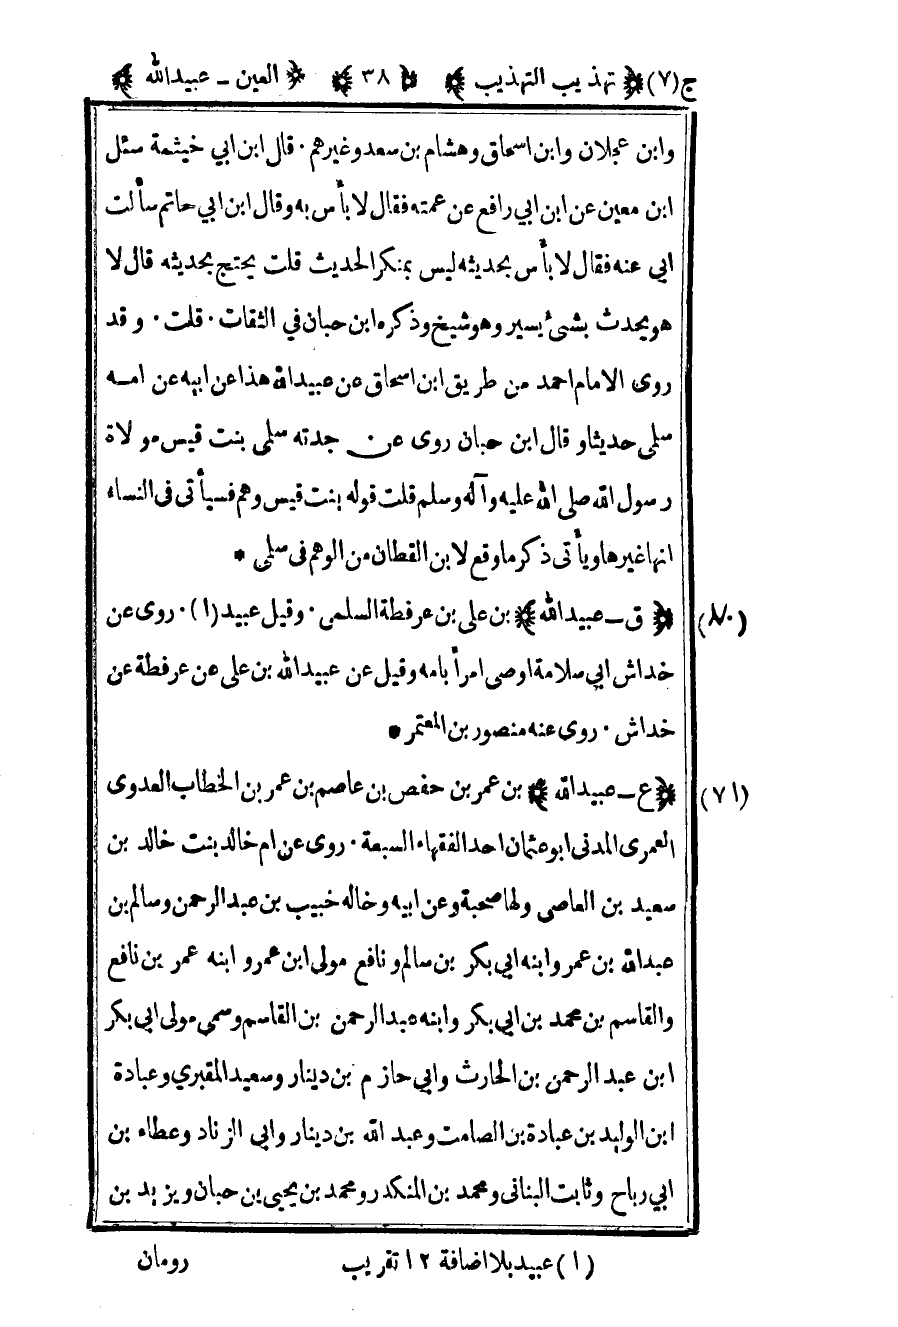 ج(٧) ﴿تهذيب التهذيب﴾ ﴿٣٨﴾ ﴿العين ــ عبيدالله﴾
وابن عجلان وابن اسحاق وهشام بن سعد وغيرهم · قال ابن ابي خيثمة سئل
ابن معين عن ابن ابي رافع عن عمته فقال لا بأس به وقال ابن ابي حاتم سألت
ابي عنه فقال لا بأس بحديثه ليس بمنكر الحديث قلت يحتج بحديثه قال لا
هو يحدث بشئ يسير وهو شيخ وذكره ابن حبان في الثقات · قلت · وقد
روى الامام احمد من طريق ابن اسحاق عن عبيدالله هذا عن ابيه عن امه
سلمى حديثا وقال ابن حبان روى عن جدته سلمى بنت قيس مولاة
رسول الله صلى الله عليه وآله وسلم قلت قوله بنت قيس وهم فسيأتى فى النساء
انها غيرها ويأتى ذكر ما وقع لابن القطان من الوهم فى سلمى *
(٧٠) ﴿ق ــ عبيدالله﴾ بن على بن عرفطة السلمى · وقيل عبيد(١) · روى عن
خداش ابي سلامة اوصى امرأ بامه وقيل عن عبيد الله بن على عن عرفطة عن
خداش · روى عنه منصور بن المعتمر *
(٧١) ﴿ع ــ عبيد الله﴾ بن عمر بن حفص بن عاصم بن عمر بن الخطاب العدوى
العمرى المدنى ابو عثمان احد الفقهاء السبعة · روى عن ام خالد بنت خالد بن
سعيد بن العاصى ولها صحبة وعن ابيه وخاله خبيب بن عبد الرحمن وسالم بن
عبد الله بن عمر وابنه ابي بكر بن سالم ونافع مولى ابن عمر وابنه عمر بن نافع
والقاسم بن محمد بن ابي بكر وابنه عبد الرحمن بن القاسم وسمي مولى ابي بكر
ابن عبد الرحمن بن الحارث وابي حازم بن دينار وسعيد المقبري وعبادة
ابن الوليد بن عبادة بن الصامت وعبد الله بن دينار وابي الزناد وعطاء بن
ابي رباح وثابت البنانى ومحمد بن المنكدر ومحمد بن يحيى بن حبان ويزيد بن
(١) عبيد بلا اضافة ١٢ تقريب رومان